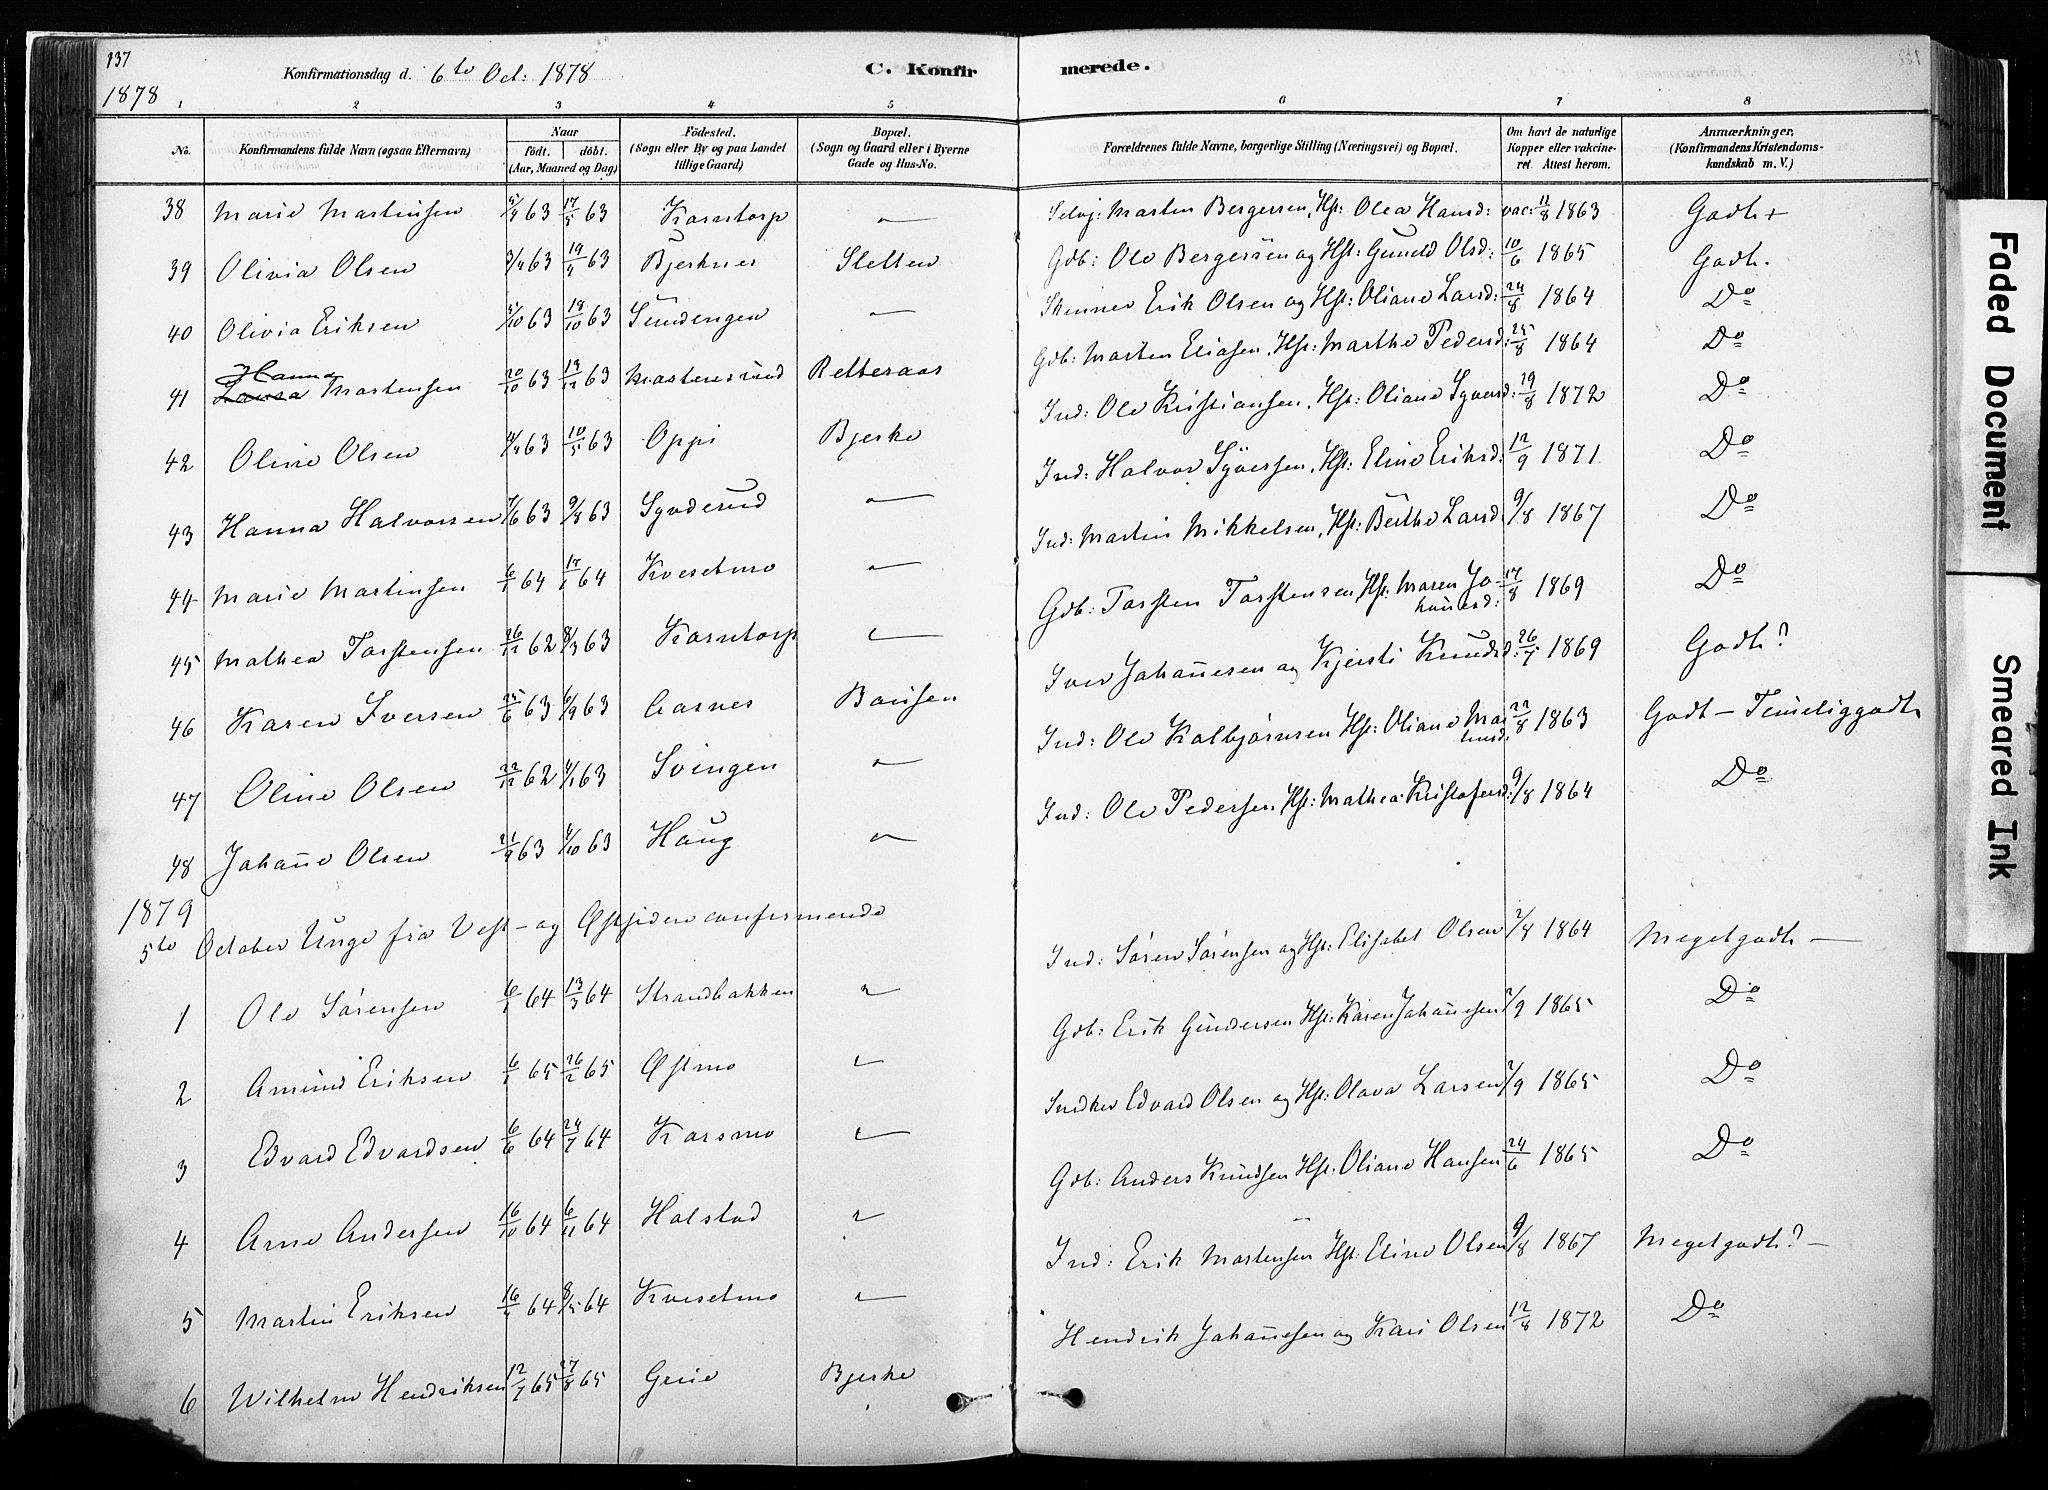 137
Konfirmationsdag d. 6to Oct: 1878
C. Konfirmerede.
1878
1 2 3 4 5 6 7 8
No.
Konfirmandens fulde Navn (ogsaa Efternavn)
Naar
födt. döbt.
(Aar, Maaned og Dag)
Födested.
(Sogn eller By og paa Landet tillige Gaard)
Bopæl.
(Sogn og Gaard eller i Byerne Gade og Hus-No.
Forældrenes fulde Navne, borgerlige Stilling (Næringsvei) og Bopæl.
Om havt de naturlige Kopper eller vakcineret. Attest herom.
Anmærkninger.
(Konfirmandens Kristendomskundskab m. V.)
38 Marie Martinsen 63 17/5 63 Korntorp — Selvej: Marten Bergersen, Hst: Olea Hansd: vac: 11/8 1863 Godt +
39 Olivia Olsen 63 19/4 63 Bjerknes Sletten Gdb: Ole Bergersen og Hst: Guneld Olsd: 10/6 1865 Godt.
40 Olivia Eriksen 5/10 63 18/10 63 Sundengen — Skinner Erik Olsen og Hst: Oliane Larsd: 24/8 1864 Do
41 Hanna Martensen 20/10 63 63 Retteraas Gdb: Marten Eliasen, Hst: Marthe Pedersd: 25/8 1864 Do
42 Oline Olsen 63 10/5 63 Oppi Bjerke Ind: Ole Kristiansen, Hst: Oliane Syversd: 29/8 1872 Do
43 Hanna Halvorsen 7/6 63 9/8 63 Synderud — Ind: Halvor Syversen, Hst: Eline Eriksd: 12/9 1871 Do
44 Marie Martinsen 6/1 64 64 Kvesetmo — Ind: Martin Mikkelsen, Hst: Berthe Larsd: 9/8 1867 Do
45 Mathea Torstensen 26/12 62 8/3 63 Korntorp — Gdb: Torsten Torstensen, Hst: Maren Johannesd: 17/8 1869 Do
46 Karen Iversen 25/6 63 6/9 63 Aarnes Bousen Iver Johannesen og Kjersti Knudsd: 26/7 1869 Godt?
47 Oline Olsen 22/12 62 63 Svingen — Ind: Ole Kolbjørnsen Hst: Oliane 22/8 1863 Godt – Temeliggodt
48 Johanne Olsen 21/9 63 4/10 63 Haug — Ind: Ole Pedersen, Hst: Mathea Kristofersd: 9/8 1864 Do
1879
5te October Unge fra Vest- og Østsiden confirmerede
1 Ole Sørensen 6/1 64 13/3 64 Strandbakken — Ind: Søren Sørensen og Hst: Elisabet Olsen 2/8 1864 Megetgodt —
2 Amund Eriksen 6/1 65 26/2 65 Østmo — Gdb: Erik Gundersen Hst: Karen Johannesen 2/9 1865 Do
3 Edvard Edvardsen 6/6 64 24/7 64 Korsmo — Indker Edvard Olsen og Hst: Olava Larsen 2/9 1865 Do
4 Arne Andersen 16/10 64 6/11 64 Holstad — Gdb: Anders Knudsen Hst: Oliane Hansen 24/6 1865 Do
5 Martin Eriksen 16/4 64 8/5 64 Kvesetmo — Ind: Erik Mortensen Hst: Eline Olsen 9/8 1867 Megetgodt? –
6 Wilhelm Hendriksen 12/7 65 27/8 65 Grue Bjerke Hendrik Johannesen og Kari Olsen 12/8 1872 Do
Faded Document
Smeared Ink